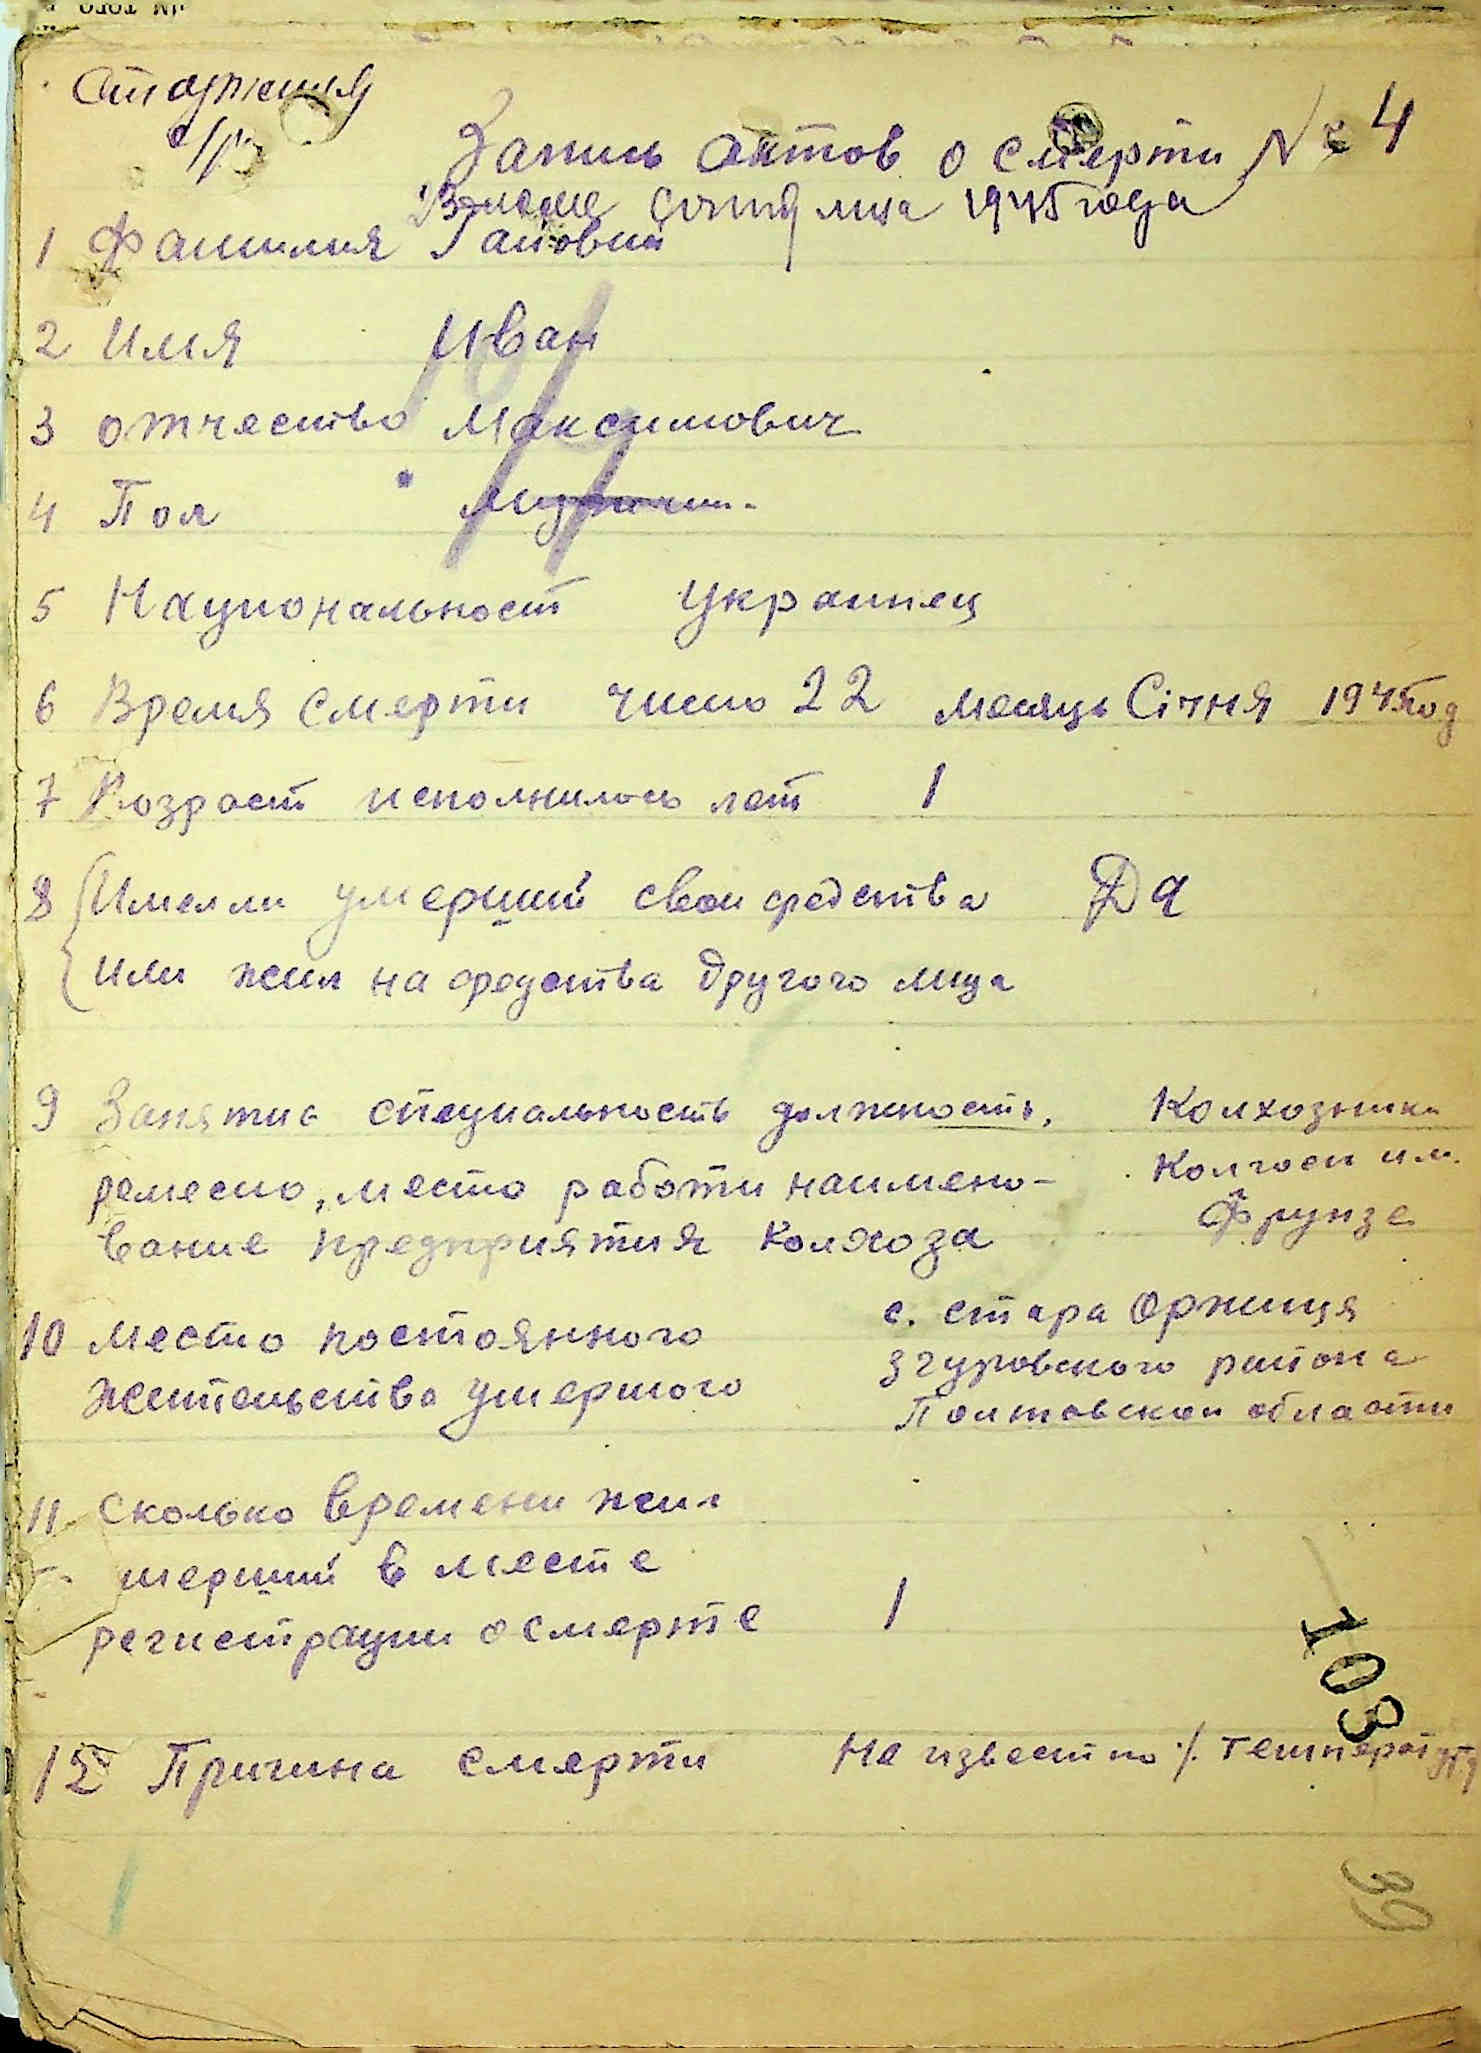 с/р
Запись актов о смерти № 4
1945 года
1 Фамилия Гайовий
2 Имя Иван
3 отчество Максимович
4 Пол мужчин.
5 Национальност Украинец
6 Время смерти число 22 месяць Січня 1945 год
7 Возраст исполнилось лет 1
8 Имел ли умерший свои средства Да
или жил на средства другого лица
9 Занятие специальность должность, Колхозник
ремесло, место работи наимено- Колгосп им.
вание предприятия колхоза Фрунзе
10 Место постоянного с. стара Оржиця
жительства умершого згуровского района
Полтавской области
11 Сколько времени жил
умерший в месте
регистрации о смерте 1
12 Причина смерти Не известно /. температура
103
39